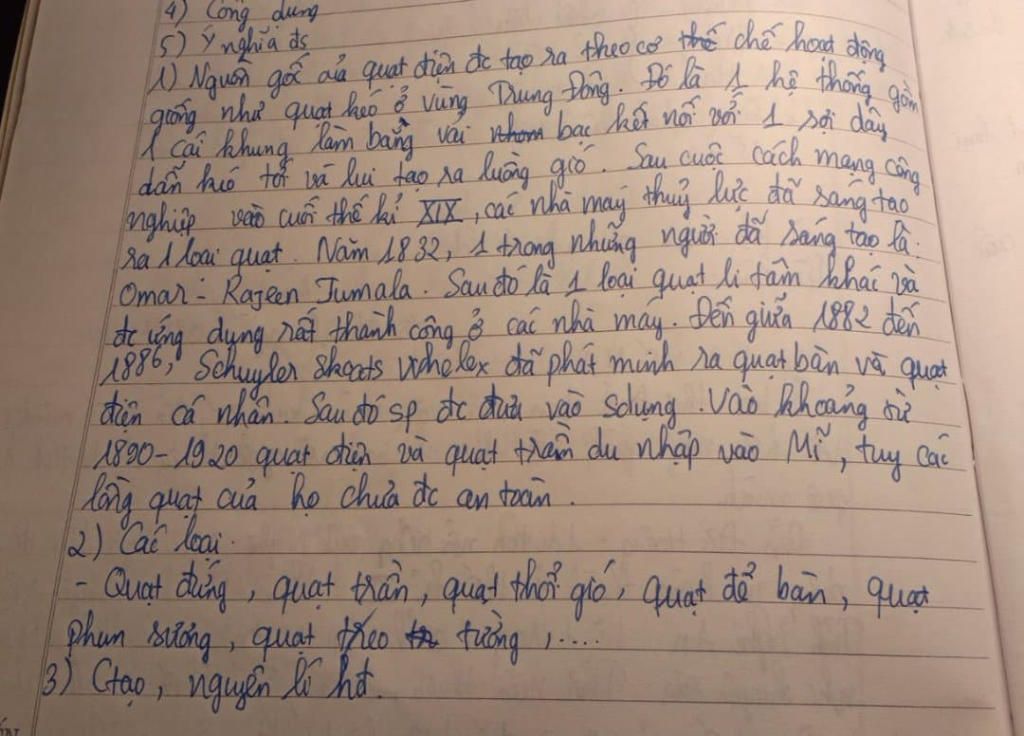 4) Công dụng
5) Ý nghĩa đs
1) Nguồn gốc của quạt điện đc tạo ra theo cơ thế chế hoạt động
giống như quạt kéo ở vùng Trung Đông. Đó là 1 hệ thống gồm
1 cái khung làm bằng vải bạc kết nối với 1 sợi dây
dẫn kéo tới và lui tạo ra luồng gió. Sau cuộc cách mạng công
nghiệp vào cuối thế kỉ XIX, các nhà máy thuỷ lực đã sáng tạo
ra 1 loại quạt. Năm 1832, 1 trong những người đã sáng tạo là:
Omar - Rajeen Jumala. Sau đó là 1 loại quạt li tâm khác và
đc ứng dụng rất thành công ở các nhà máy. Đến giữa 1882 đến
1886, Schuyler Skaats Whelex đã phát minh ra quạt bàn và quạt
điện cá nhân. Sau đó sp đc đưa vào sdụng. Vào khoảng từ
1890-1920 quạt điện và quạt trần du nhập vào Mĩ, tuy các
lồng quạt của họ chưa đc an toàn.
2) Các loại.
- Quạt đứng, quạt trần, quạt thổi gió, quạt để bàn, quạt
phun sương, quạt treo tường,....
3) Ctạo, nguyên lí hđ.